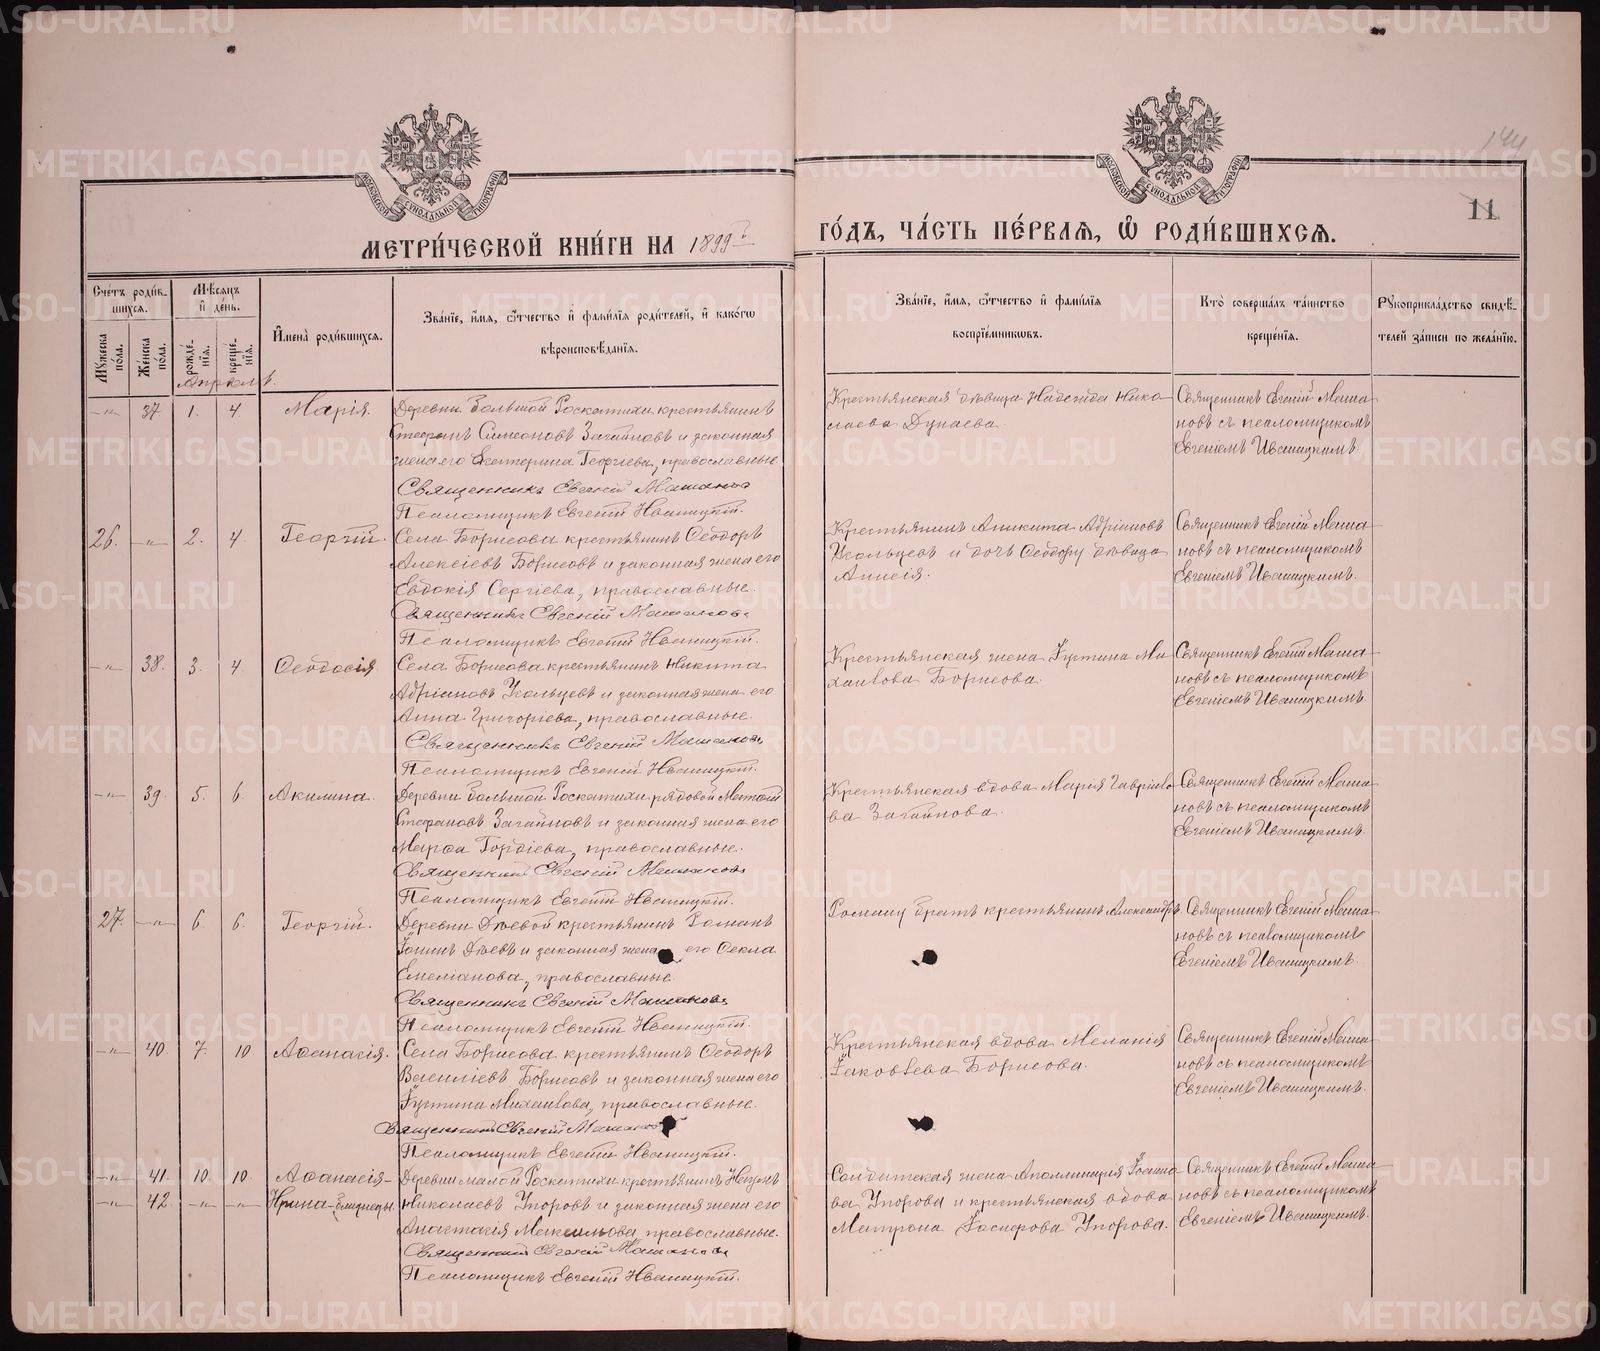 METRIKI.GASO-URAL.RU
144
11
МОСКОВСКОЙ СѴНОДАЛЬНОЙ ТИПОГРАФІИ
МОСКОВСКОЙ СѴНОДАЛЬНОЙ ТИПОГРАФІИ
МЕТРИ́ЧЕСКОЙ КНИ́ГИ НА 1899й
ГО́ДЪ, ЧА́СТЬ ПЕ́РВАЯ, Ѡ҆ РОДИ́ВШИХСЯ.
Сче́тъ роди́вшихся.
Мꙋ́жеска по́ла.
Же́нска по́ла.
Мѣ́сяцъ и҆ де́нь.
рожде́нїя.
креще́нїя.
И҆мена̀ роди́вшихся.
Зва́нїе, и҆́мя, ѻ҆́тчество и҆ фамѝлїѧ роди́телей, и҆ како́гѡ
вѣроисповѣ́данїѧ.
Зва́нїе, и҆́мя, ѻ҆́тчество и҆ фамѝлїѧ
воспрїе́мниковъ.
Кто̀ соверша́лъ та́инство
креще́нїѧ.
Рꙋкоприкла́дство свидѣ́-
телей за́писи по жела́нїю.
Апрѣль.
-"- 37 1. 4. Марія.
Деревни Большой Роскатихи крестьянинъ
Стефанъ Симеоновъ Загайновъ и законная
жена его Екатерина Георгіева, православные.
Священникъ Евгеній Машановъ
Псаломщикъ Евгеній Иваницкій.
Крестьянская дѣвица Надежда Нико-
лаева Дунаева.
Священникъ Евгеній Маша-
новъ съ псаломщикомъ
Евгеніемъ Иваницкимъ.
26. -"- 2. 4. Георгій.
Села Борисова крестьянинъ Ѳеодоръ
Алексіевъ Борисовъ и законная жена его
Евдокія Сергіева, православные.
Священникъ Евгеній Машановъ
Псаломщикъ Евгеній Иваницкій.
Крестьянинъ Никита Адріановъ
Укольцевъ и дочь Ѳеодору дѣвица
Аннсія.
Священникъ Евгеній Маша-
новъ съ псаломщикомъ
Евгеніемъ Иваницкимъ.
-"- 38. 3. 4 Ѳеодосія
Села Борисова крестьянинъ Никита
Адріановъ Укольцевъ и законная жена его
Анна Григоріева, православные.
Священникъ Евгеній Машановъ
Псаломщикъ Евгеній Иваницкій.
Крестьянская жена Іустина Ми-
хаилова Борисова.
Священникъ Евгеній Маша-
новъ съ псаломщикомъ
Евгеніемъ Иваницкимъ.
-"- 39. 5. 6. Акилина.
Деревни Большой Роскатихи рядовой Матѳій
Стефановъ Загайновъ и законная жена его
Марѳа Гордіева, православные.
Священникъ Евгеній Машановъ
Псаломщикъ Евгеній Иваницкій.
Крестьянская вдова Марія Гавріило-
ва Загайнова.
Священникъ Евгеній Маша-
новъ съ псаломщикомъ
Евгеніемъ Иваницкимъ.
27. -"- 6. 6. Георгій.
Деревни Дѣевой крестьянинъ Романъ
Іоаннъ Дѣевъ и законная жена его Ѳекла
Емеліанова, православные.
Священникъ Евгеній Машановъ
Псаломщикъ Евгеній Иваницкій.
Роману братъ крестьянинъ Александръ.
Священникъ Евгеній Маша-
новъ съ псаломщикомъ
Евгеніемъ Иваницкимъ.
-"- 40. 7. 10 Аѳанасія.
Села Борисова крестьянинъ Ѳеодоръ
Василіевъ Борисовъ и законная жена его
Іустина Михаилова, православные.
Священникъ Евгеній Машановъ
Псаломщикъ Евгеній Иваницкій.
Крестьянская вдова Меланія
Іаковлева Борисова.
Священникъ Евгеній Маша-
новъ съ псаломщикомъ
Евгеніемъ Иваницкимъ.
-"- 41. 10. 10. Аѳанасія-
-"- 42. -"- -"- Ирина-близнецы.
Деревни малой Роскатихи крестьянинъ Наумъ
Николаевъ Упоровъ и законная жена его
Анастасія Максимова, православные.
Священникъ Евгеній Машановъ
Псаломщикъ Евгеній Иваницкій.
Солдатская жена Аполлинарія Іоанно-
ва Упорова и крестьянская вдова
Матрона Іосифова Упорова.
Священникъ Евгеній Маша-
новъ съ псаломщикомъ
Евгеніемъ Иваницкимъ.